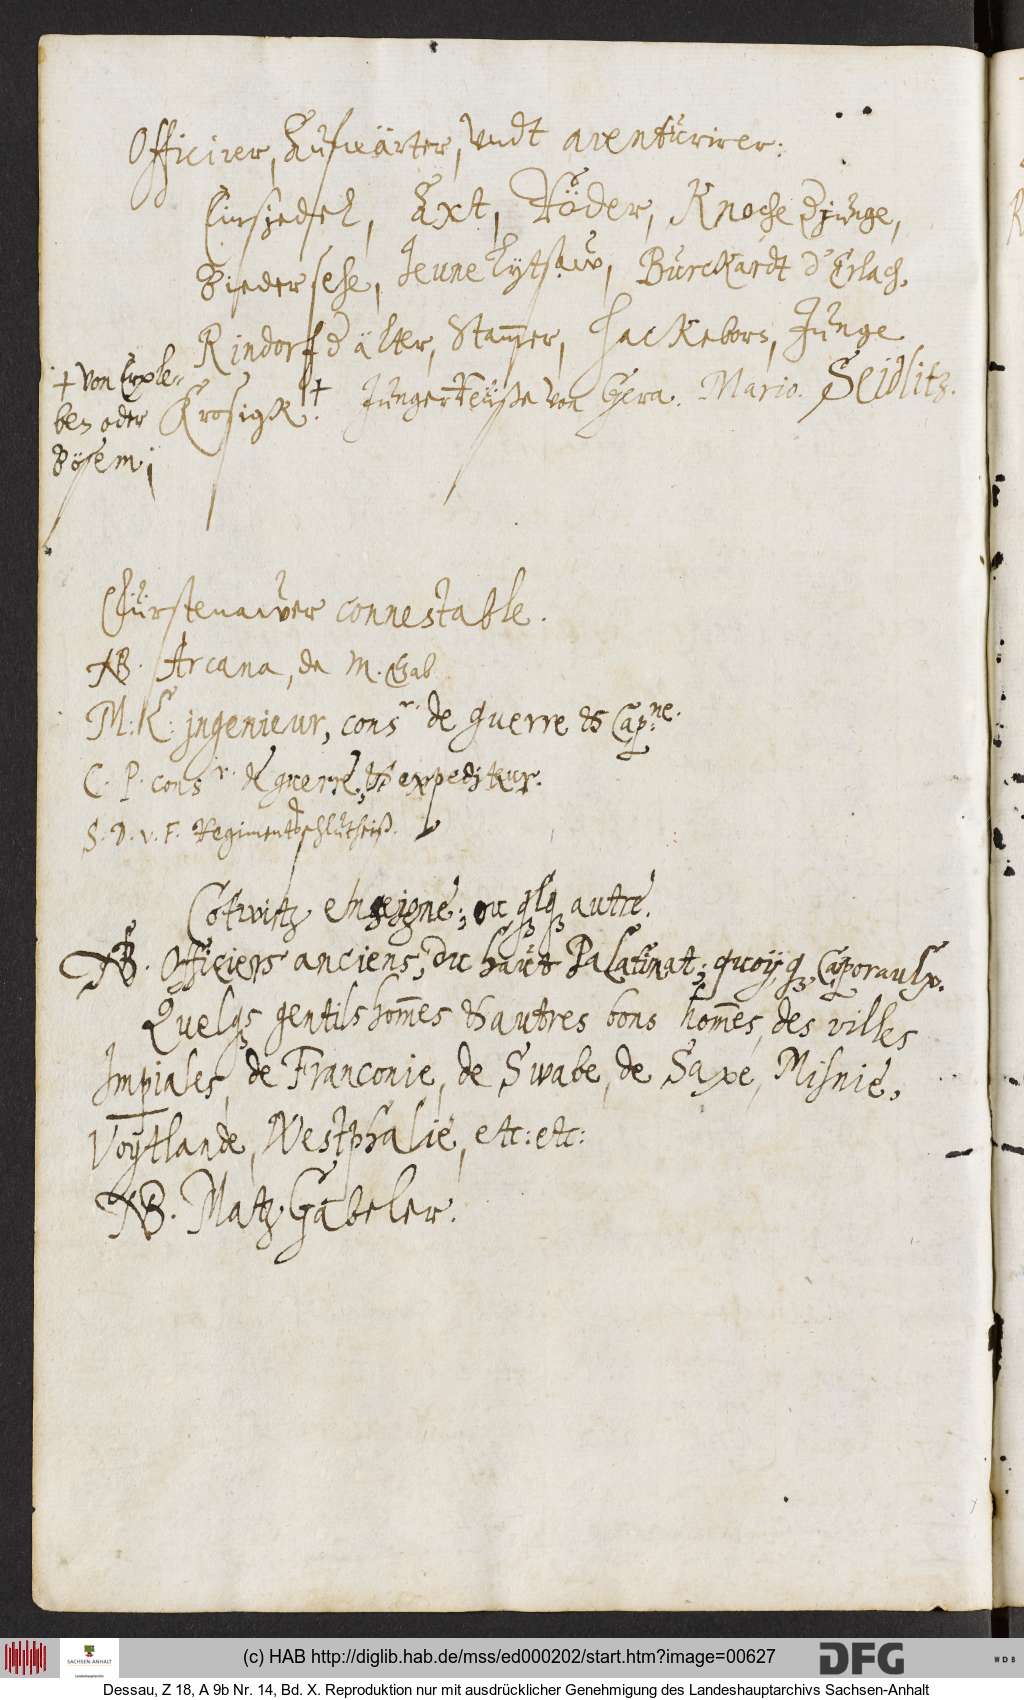 Officirer, Aufwärter, vndt aventurirer:
Einsiedel, Axt, Röder, Knoche d junge,
Biedersehe, Jeune Lytsaw, Burckardt d'Erlach,
Rindorf d älter, Stam̅er, Hackeborn, Junge
+ von Erxle-
ben oder
Bösem;
Krosigk + Junger Reuße von Gera. Mario. Seidlitz.
Fürstenawer connestable.
NB. Arcana, de M. Gab
M: K: jngenieur, consr. de guerre et Cap:ne.
C. P. consr. de guerre, et expediteur.
S. D. v. F. Regimentsschultheiß.
Cotwitz enseigne; ou qlq autre.
NB. Officiers anciens, du haut Palatinat; quoyq Caporaulx.
Quelqs gentilshom̅es et autres bons hom̅es, des villes
Impiales, de Franconie, de Swabe, de Saxe, Misnie,
Voytlande, Westphalie, etc: etc:
NB. Matz Gabeler.
SACHSEN-ANHALT
(c) HAB http://diglib.hab.de/mss/ed000202/start.htm?image=00627
DFG
WDB
Dessau, Z 18, A 9b Nr. 14, Bd. X. Reproduktion nur mit ausdrücklicher Genehmigung des Landeshauptarchivs Sachsen-Anhalt